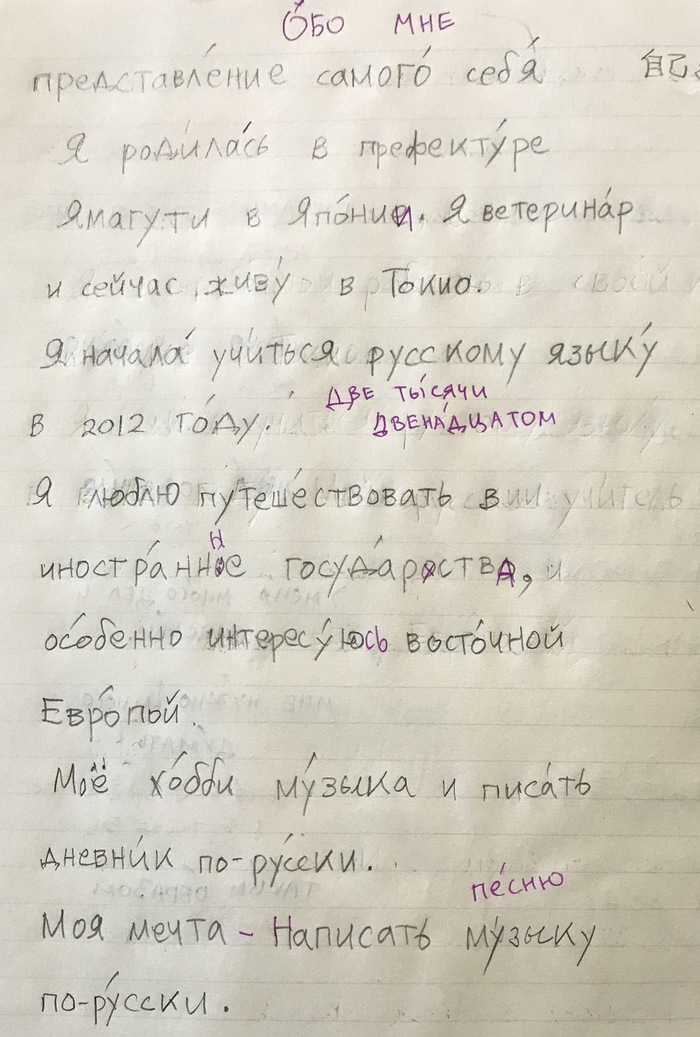 О́бо мне
представле́ние самого́ себя́ 自己
Я роди́ла́сь в префекту́ре
Ямагути в Япо́нии. Я ветерина́р
и сейчас живу́ в То́кио.
Я начала́ учи́ться русскому языку́
две ты́сячи
в 2012 го́ду. двена́дцатом
Я люблю путеше́ствовать в
иностра́нные госуда́рства, и
осо́бенно интересу́юсь восто́чной
Евро́пой.
Моё хо́бби му́зыка и писа́ть
дневни́к по-ру́сски.
пе́сню
Моя мечта - Написать му́зыку
по-ру́сски.